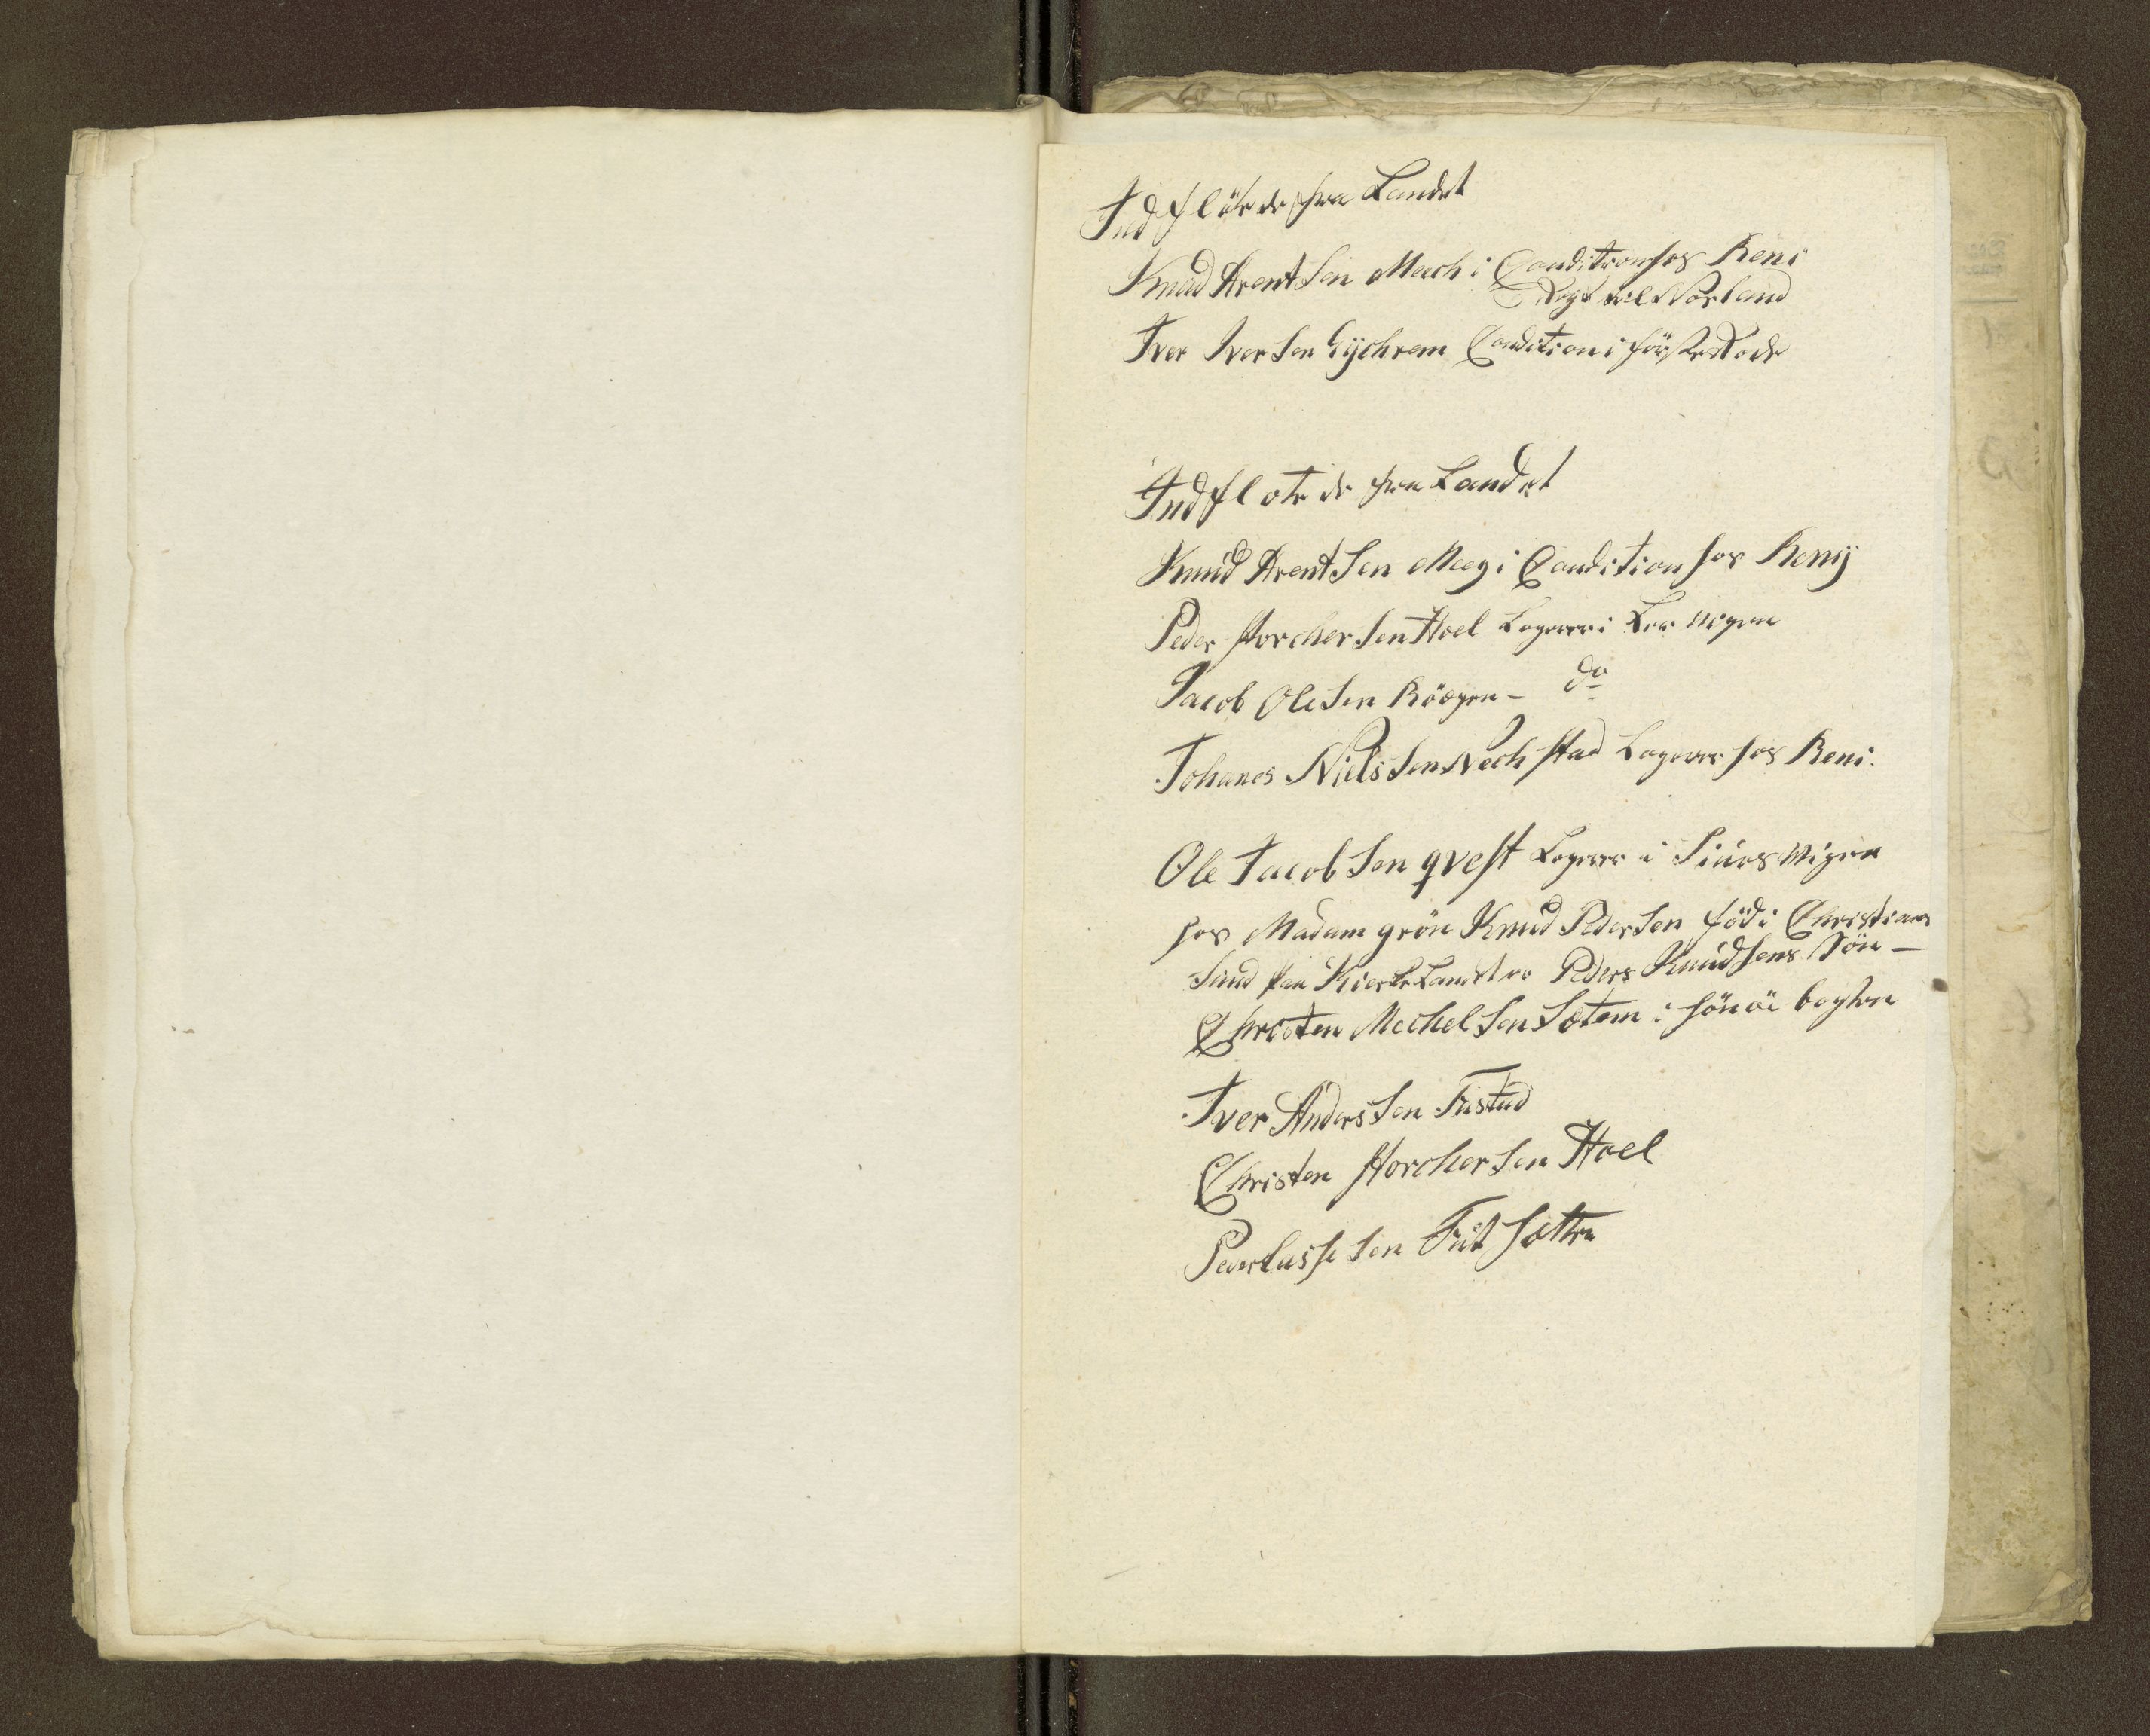 Indflötede fra Landet
Knud Arentsen Mech i Condition hos Reni
Rejst til Norland
Iver Iversen Gÿchrem Condition i förste Rode
Indflotede fra Landet
Knud Arentsen Meeg i Condition hos Renÿ
Peder Storchersen Hoel Logerer i
Jacob Olesen Röögen - do
Johanes Nielssen Vechstad Logerer hos Reni.
Ole Jacobsen qvest Logerer i
hos Madam grön Knud Pedersen föd i Christian
sund paa Kierkelandet er Peders Knudsens Sön -
Christen Mechelsen Sotem i
Iver Anderssen Fustad
Christen Storchersen Hoel
Peder Lassesen